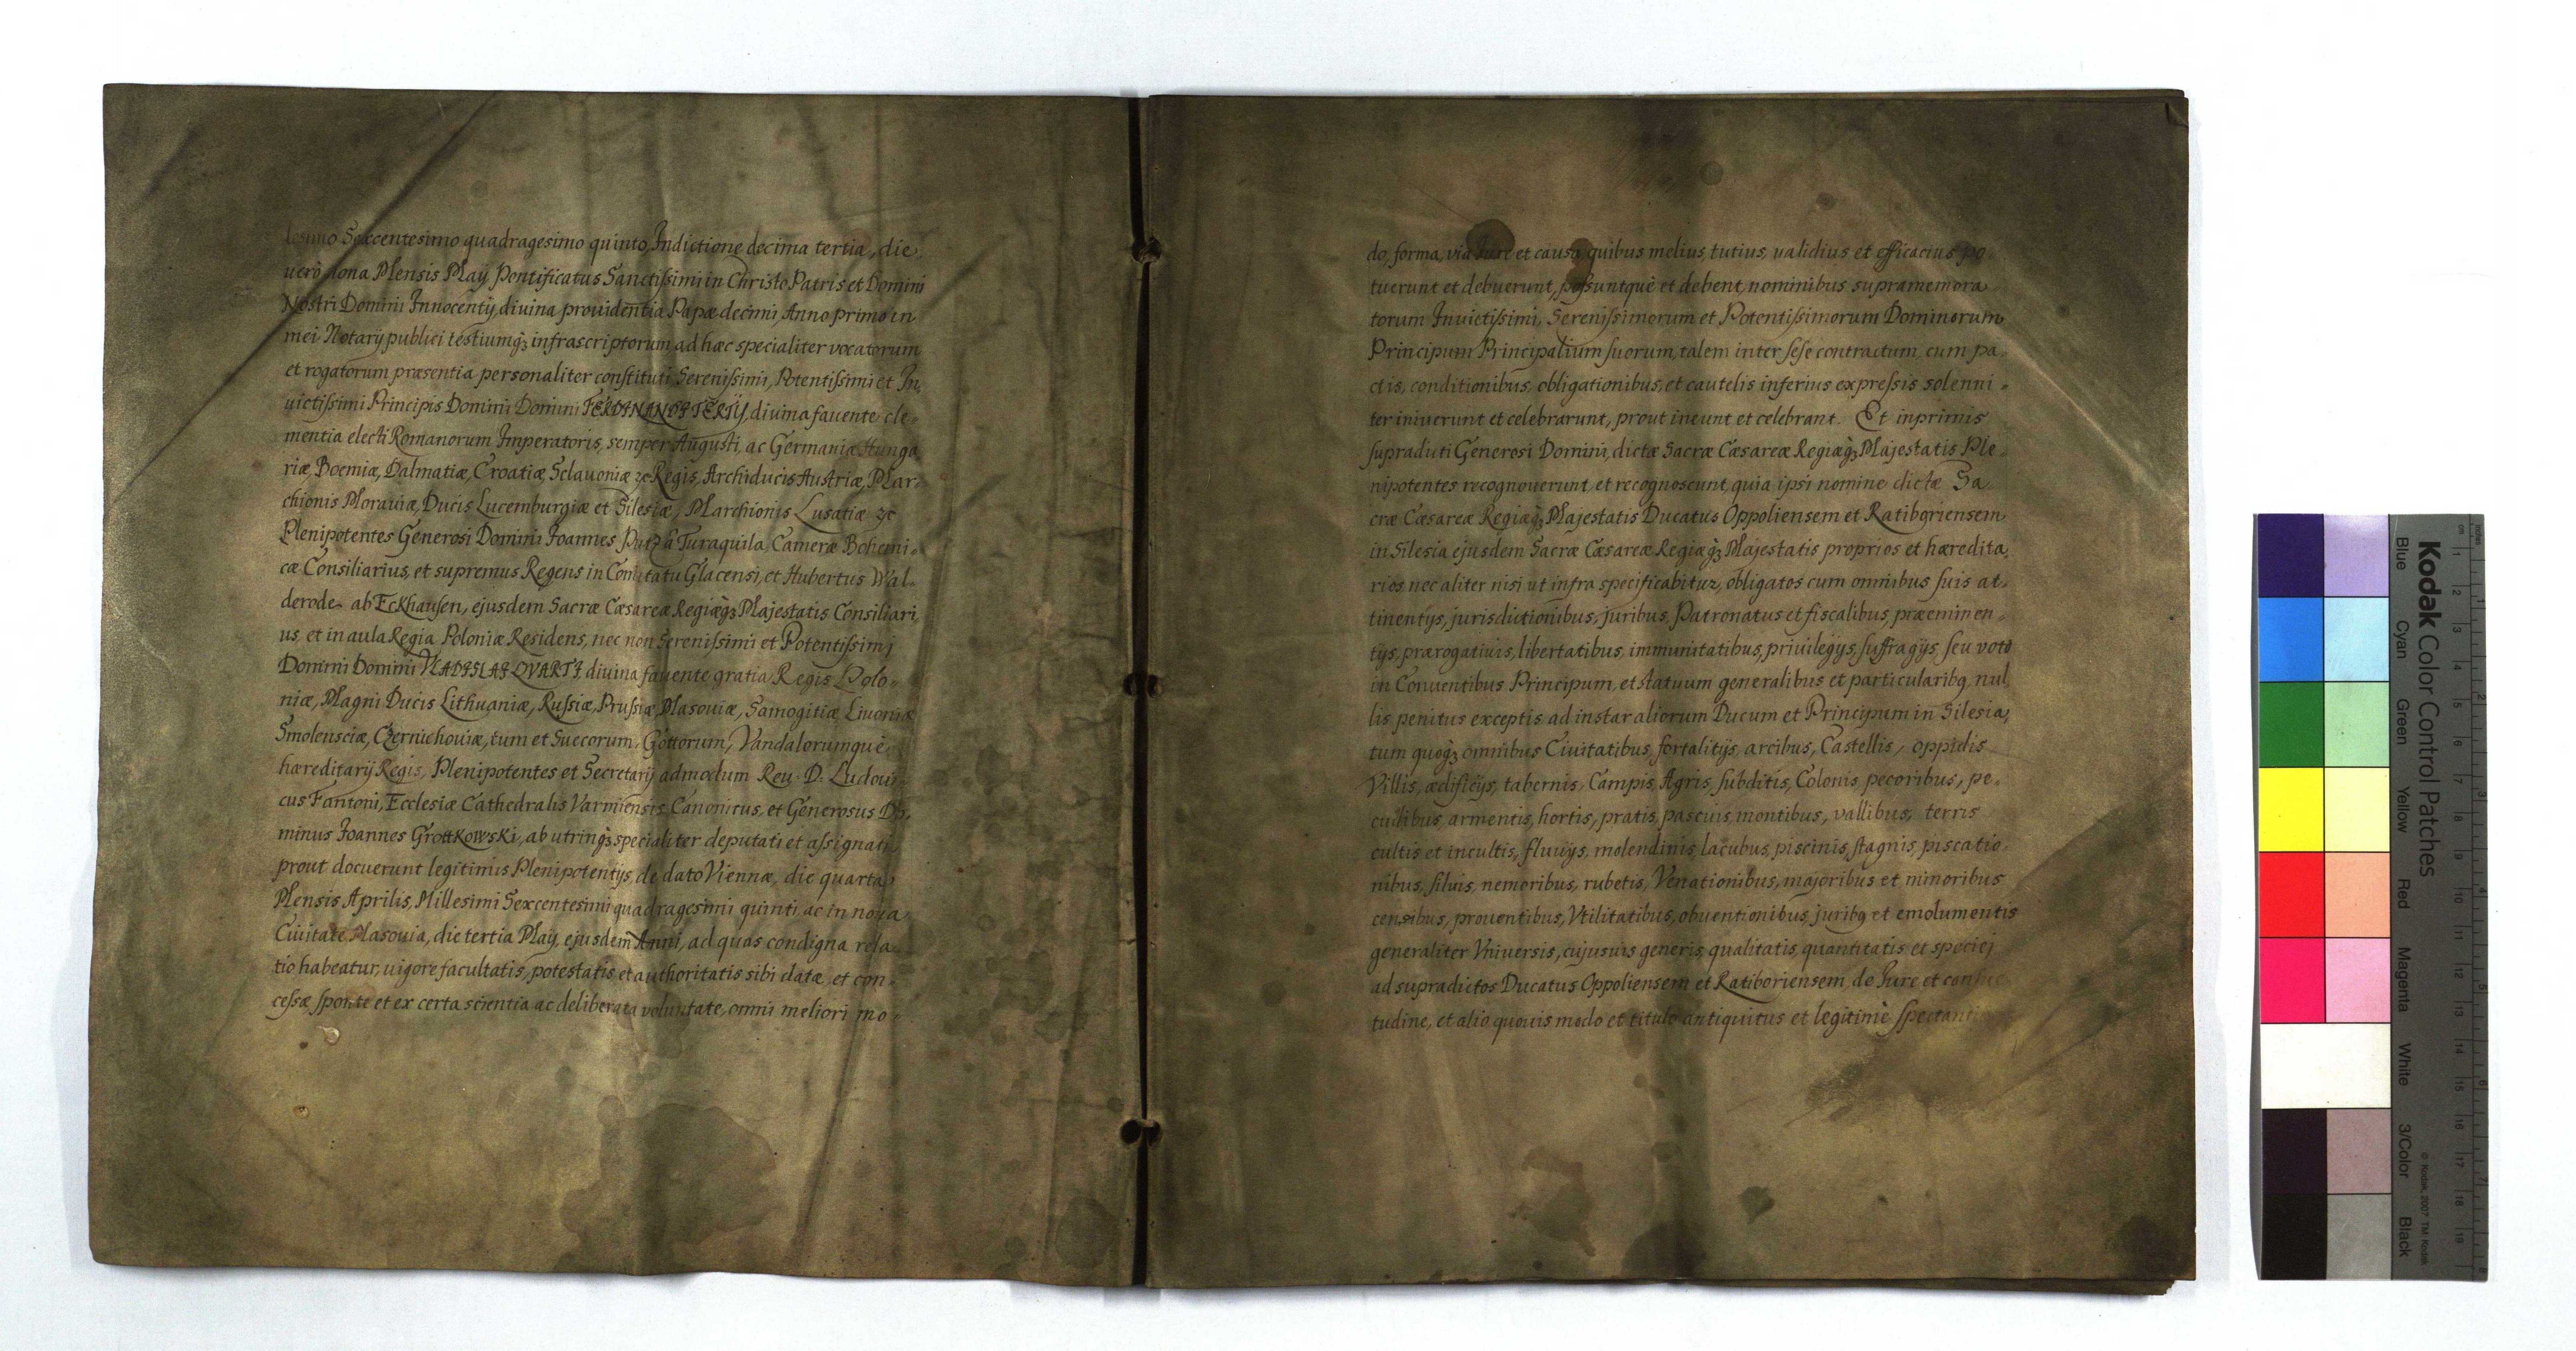 lesimo Sexcentesimo quadragesimo quinto, Indictione decima tertia, die
uerò nona Mensis Maÿ Pontificatus Sanctissimi in Christo Patris et Domini
Nostri Domini Innocentÿ, divina prouidentia Papæ decimi, Anno primo in
mei Notarÿ publici testiumq́ꝫ infrascriptorum, ad hæc specialiter vocatorum
et rogatorum præsentia personaliter constituti Serenissimi, Potentissimi et In,
uictissimi Principis Domini Domini FERDINANDI TERTY, diuina fauente cle-
mentia electi Romanorum Imperatoris, semper Augusti, ac Germaniæ Hunga
riæ, Boemiæ, Dalmatiæ, Croatiæ, Sclauoniæ ꝛc Regis, Archiducis Austriæ, Mar-
chionis Morauiæ, Ducis Lucemburgiæ et Silesiæ, Marchionis Lusatiæ ꝛc
Plenipotentes Generosi Domini Joannes Putz â Turaquila, Cameræ Bohemi-
cæ Consiliarius, et supremus Regens in Comitatu Glacensi, et Hubertus Wal-
derode ab Eckhausen, ejusdem Sacræ Cæsareæ Regiæq́ꝫ Majestatis Consiliari,
us, et in aula Regia Poloniæ Residens, nec non Serenissimi et Potentissimj
Domini Domini VLADISLAI QVARTI, diuina fauente gratia Regis Polo-
niæ, Magni Ducis Lithuaniæ, Russiæ, Prussiæ, Masouiæ, Samogitiæ, Liuoniæ
Smolensciæ, Czernichouiæ, tum et Suecorum, Gottorum, Vandalorumquè
hæreditarÿ Regis, Plenipotentes et Secretarÿ admodum Reu: D: Ludoui-
cus Fantoni, Ecclesiæ Cathedralis Varmiensis Canonicus, et Generosus Do-
minus Joannes Grottkowski, ab utrinq́ꝫ specialiter deputati et assignati,
prout docuerunt legitimis Plenipotentÿs, de dato Viennæ, die quarta
Mensis Aprilis, Millesimi Sexcentesimi quadragesimi quinti, ac in noua
Ciuitate Masouia, die tertia Maÿ, ejusdem Anni, ad quas condigna rela-
tio habeatur, uigore facultatis, potestatis et authoritatis sibi datæ, et con-
cessæ sponte et ex certa scientia ac deliberata voluntate, omni meliori mo-
do, forma, via Jure et causa, quibus melius, tutius, validius et efficacius po-
tuerunt et debuerunt, possuntquè et debent, nominibus supramemora
torum Inuictissimi, Serenissimorum et Potentissimorum Dominorum
Principum Principalium suorum, talem inter sese contractum cum pa-
ctis, conditionibus, obligationibus, et cautelis inferius expressis solenni-
ter iniuerunt et celebrarunt, prout ineunt et celebrant. Et inprimis
supraduti Generosi Domini, dictæ Sacræ Cæsareæ Regiæq́ꝫ Majestatis Ple-
nipotentes recognouerunt, et recognoscunt, quia ipsi nomine dictæ Sa
cræ Cæsareæ Regiæq́ꝫ Majestatis Ducatus Oppoliensem et Ratiboriensem
in Silesia ejusdem Sacræ Cæsareæ Regiæq́ꝫ Majestatis proprios et hæredita,
rios nec aliter nisi ut infra specificabitur, obligatos cum omnibus suis at-
tinentÿs, jurisdictionibus, juribus, Patronatus et fiscalibus, præeminen-
tÿs, prærogatiuis, libertatibus, immunitatibus, priuilegÿs, suffragÿs, seu voto
in Conuentibus Principum, et statuum generalibus et particularibq, nul
lis penitus exceptis ad instar aliorum Ducum et Principum in Silesia,
tum quoq́ꝫ omnibus Ciuitatibus fortalitÿs, arcibus, Castellis, oppidis
Villis, ædificÿs, tabernis, Campis, Agris, subditis, Colonis, pecoribus, pe-
cudibus, armentis, hortis, pratis, pascuis, montibus, vallibus, terris
cultis et incultis, fluuÿs, molendinis, lacubus, piscinis, stagnis, piscatio-
nibus, siluis, nemoribus, rubetis, Venationibus, majoribus et minoribus
censibus, prouentibus, Vtilitatibus, obuentionibus, juribq et emolumentis
generaliter Vniuersis, cujusuis generis, qualitatis, quantitatis, et speciej
ad supradictos Ducatus Oppoliensem et Ratiboriensem, de Jure et consue
tudine, et alio quouis modo et titulo antiquitus et legitimè spectanti
Kodak Color Control Patches
Blue
Cyan
Green
Yellow
Red
Magenta
White
3/Color
Black
© Kodak, 2007 TM: Kodak